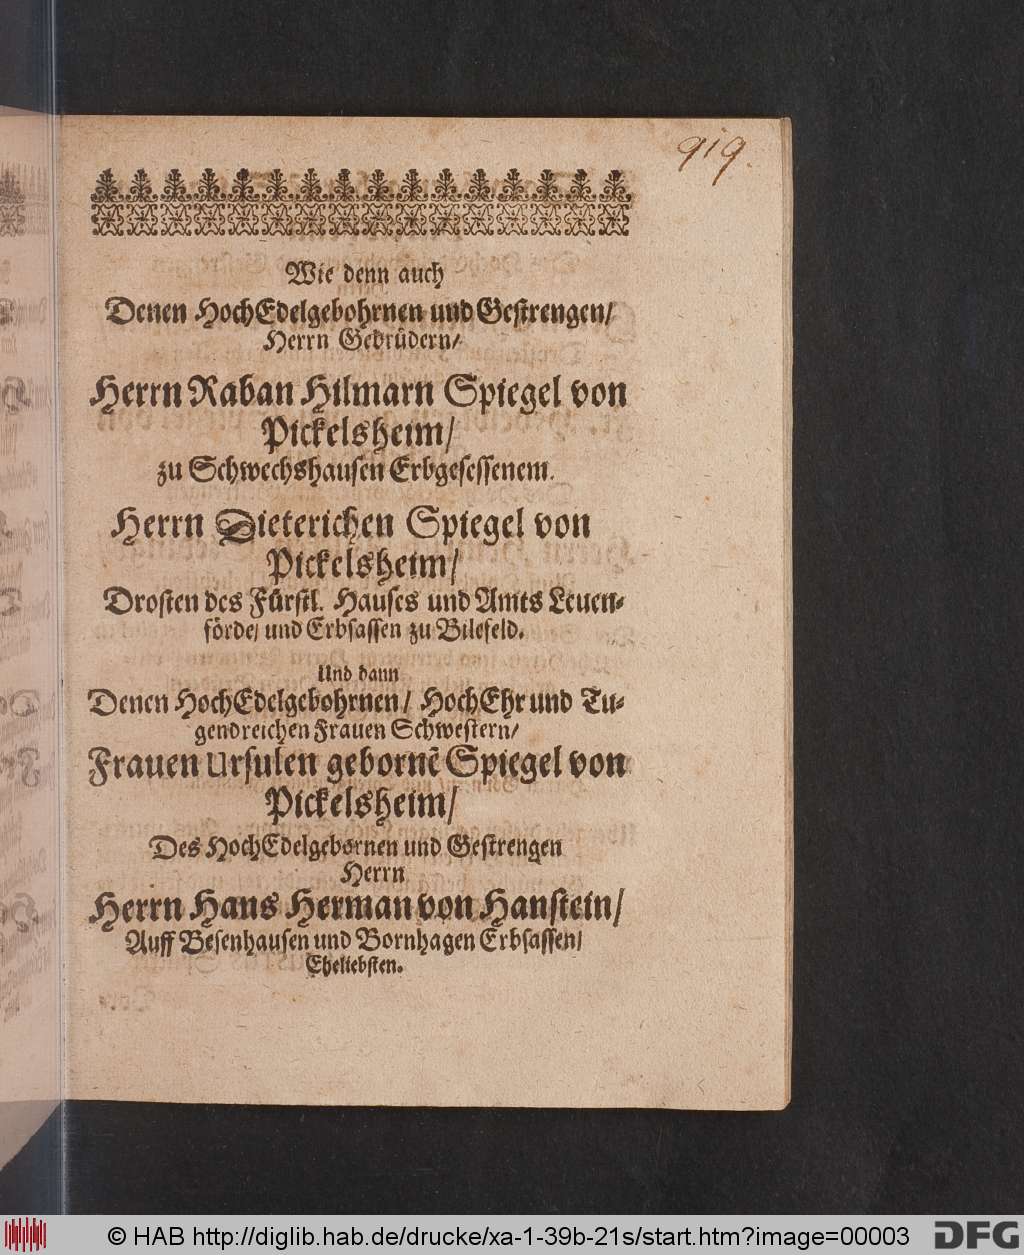 919.
Wie denn auch
Denen HochEdelgebohrnen und Gestrengen/
Herrn Gebrüdern/
Herrn Raban Hilmarn Spiegel von
Pickelsheim/
zu Schwechshausen Erbgesessenem.
Herrn Dieterichen Spiegel von
Pickelsheim/
Drosten des Fürstl. Hauses und Amts Leuen-
förde/ und Erbsassen zu Bilefeld.
Und dann
Denen HochEdelgebohrnen/ HochEhr und Tu-
gendreichen Frauen Schwestern/
Frauen Ursulen gebornẽ Spiegel von
Pickelsheim/
Des HochEdelgebornen und Gestrengen
Herrn
Herrn Hans Herman von Hanstein/
Auff Besenhausen und Bornhagen Erbsassen/
Eheliebsten.
© HAB http://diglib.hab.de/drucke/xa-1-39b-21s/start.htm?image=00003
DFG